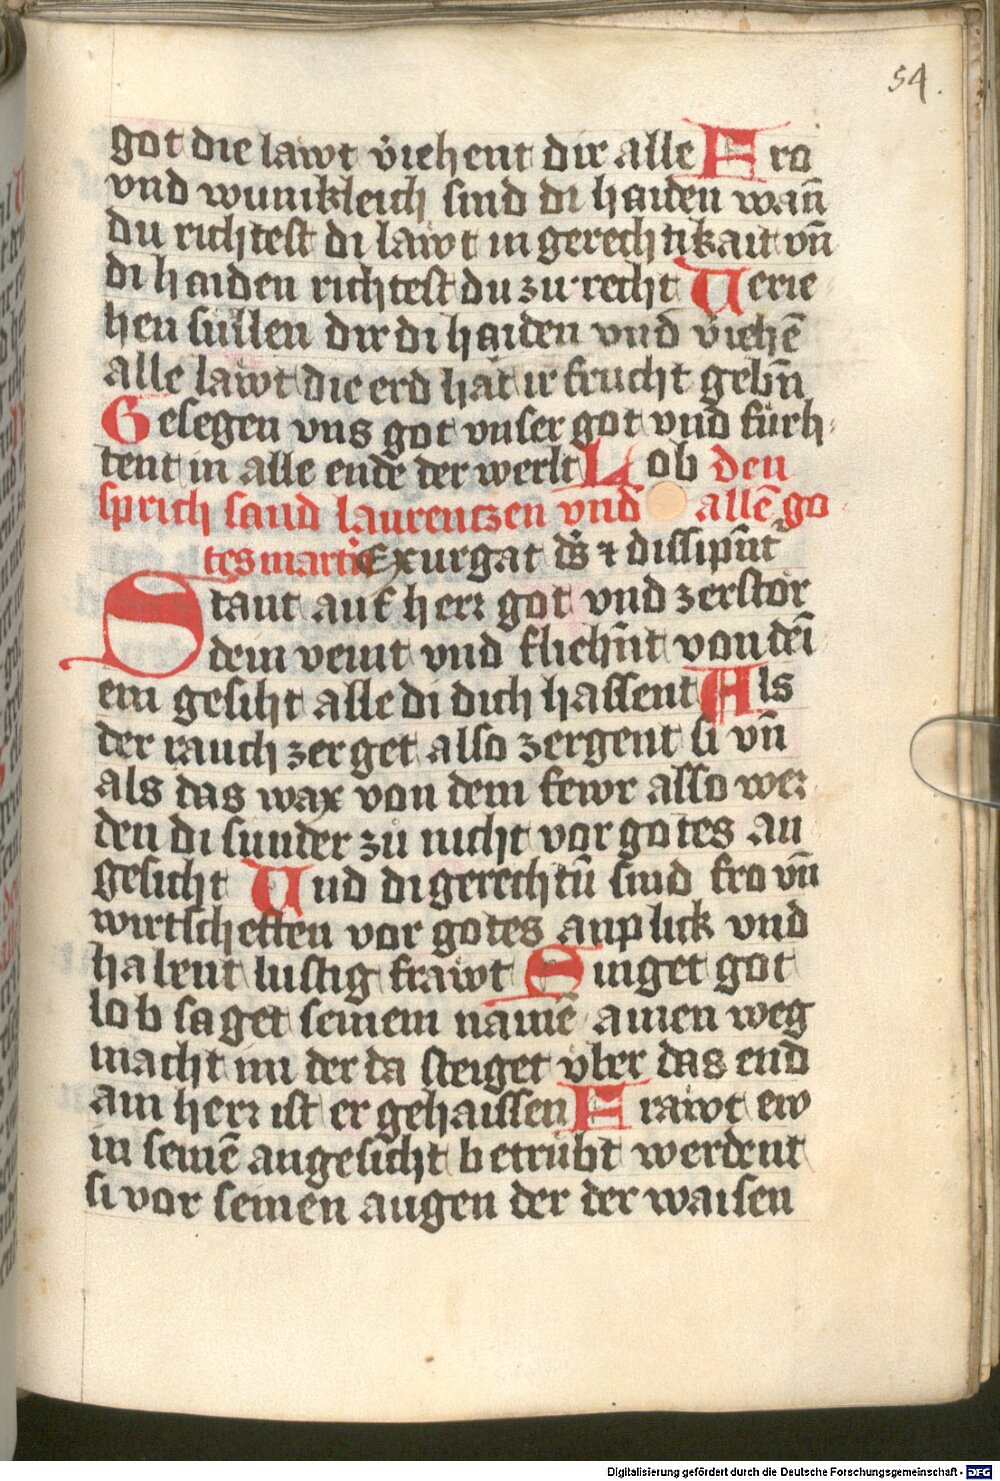 54.
got die lawt v̈iehent dir alle Fro
vnd wunikleich sind di haiden wañ
du richtest di läwt in gerechtikait vñ
di haiden richtest du zu recht Uerie
hen süllen dir di haiden vnd v̈iehē
alle läwt die erd hat ir frucht gebn̄
Gesegen vns got vnser got vnd fürh
tent in alle ende der werlt Lob den
sprich sand laurentzen vnd allē go
tes martrer Exurgat ds̄ ⁊ dissipn̄t
Staut auf herr got vnd zerstör
dein veint vnd fliehn̄t von dei
em gesiht alle di dich hassent Als
der rauch zerget also zergent si vñ
als das wax von dem fewr also wer
den di sunder zu nicht vor gotes an
gesicht Und di gerechtn̄ sind fro vñ
wirtscheften vor gotes anplick vnd
habent lustig fräwt Singet got
lob saget seinem namē ainen weg
macht im der da steiget v̈ber das end
ain herr ist er gehaissen Fräwt ew
in seinē angesicht betrübt werdent
si vor seinen augen der der waisen
Digitalisierung gefördert durch die Deutsche Forschungsgemeinschaft - DFG